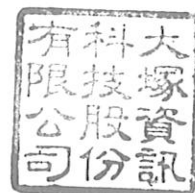 大塚資訊
科技股份
有限公司